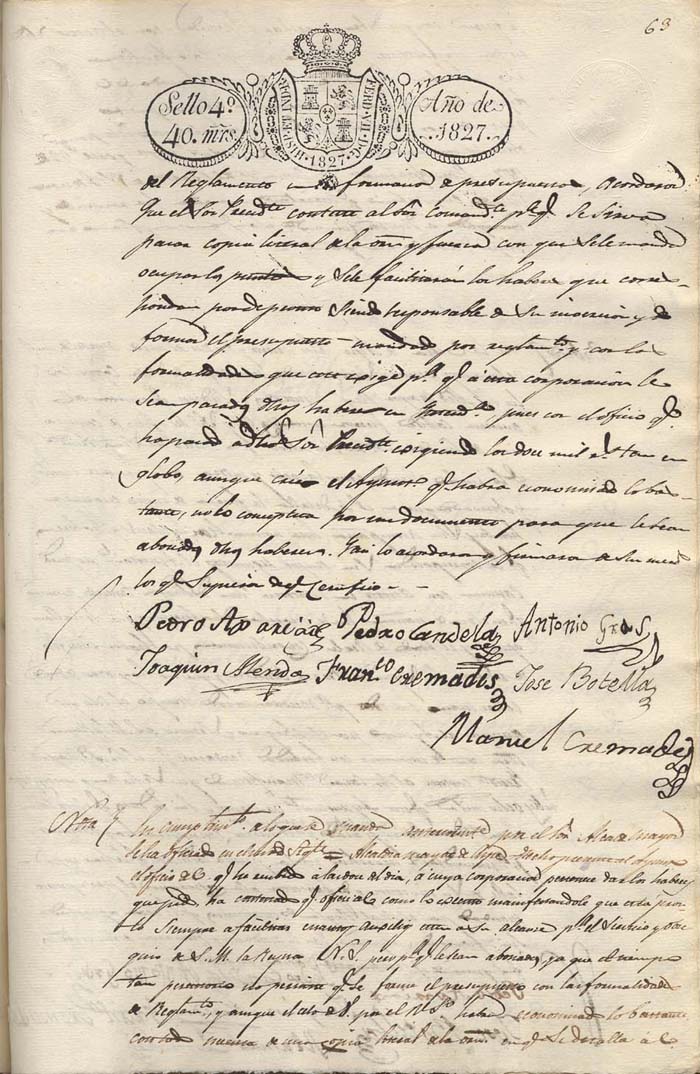 63
Sello 4º
40. mrs
HISP. ET IND. R. FERD. VII. D. G. 1827.
Año de
1827.
del Reglamento formario de presupuestos, acordaron
Que el Sor Presidte conteste al Sor Comandte pª qe se sirva
pasar copia literal de la orn y fuerza con que se le manda
ocupar los puntos y se le facilitarán los haberes que corres-
pondan por de pronto siendo responsable de su inversion y de
formar el presupuesto mandado por reglamto y con las
formalidades que este exige pª qe á esta corporacion le
sean pasados dhos haberes en pues con el oficio qe
ha pasado á dho Sor Presidte exigiendo los doce mil rs tan en
globo, aunque cree el Ayunto qe habrá economizado lo bas-
tante, no lo conceptua por un documento para que le sean
abonados dhos haberes. Y asi lo acordaron y firmaron de sus mercedes
los qe supieron de qe Certifico =
Pedro Aparici Pedro Candela Antonio Gras
Joaquin Merida Franco Cremades Jose Botella
Manuel Cremades
Nota
En cumplimto a lo que se manda anteriormente por el Sor Alcalde mayor
se ha oficiado Alcaldia mayor de = He hecho presente al
oficio de V. qe he recibido á las doce del dia, á cuya corporacion pertenece dar los haberes
que pide, ha contestado qe oficie á V. como lo executo manifestandole que esta pron-
to siempre á facilitar cuantos auxilios esten a su alcance pª el servicio y obse-
quio de S. M. la Reyna N. S. pero pª qe le sean abonados, ya que el tiempo
tan perentorio no permite qe se forme el presupuesto con las formalidades
de Reglamto, y aunque el celo de V. por el Rl Sº habrá economizado lo bastante,
con todo necesita de una copia literal de la orn en qe se detalla á el